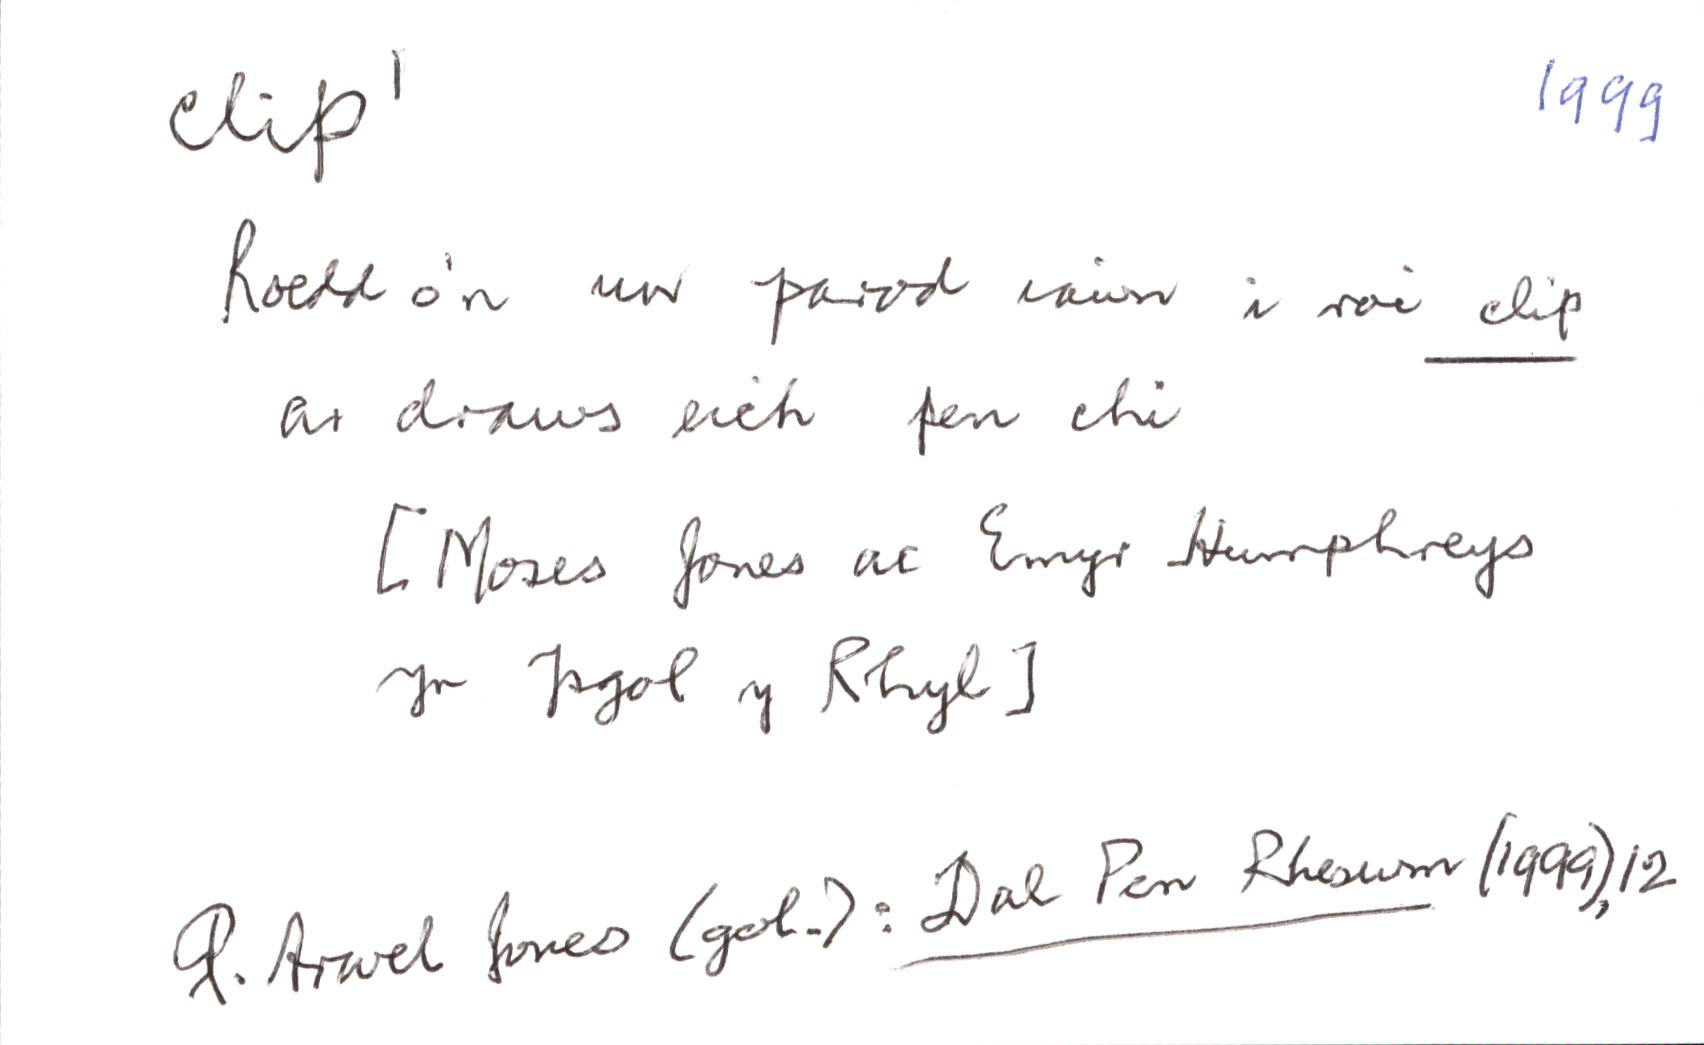 clip¹ 1999
Roedd o'n un parod iawn i roi clip
ar draws eich pen chi
[Moses Jones ac Emyr Humphreys
yn Ysgol y Rhyl]
R. Arwel Jones (gol.): Dal Pen Rheswm (1999), 12